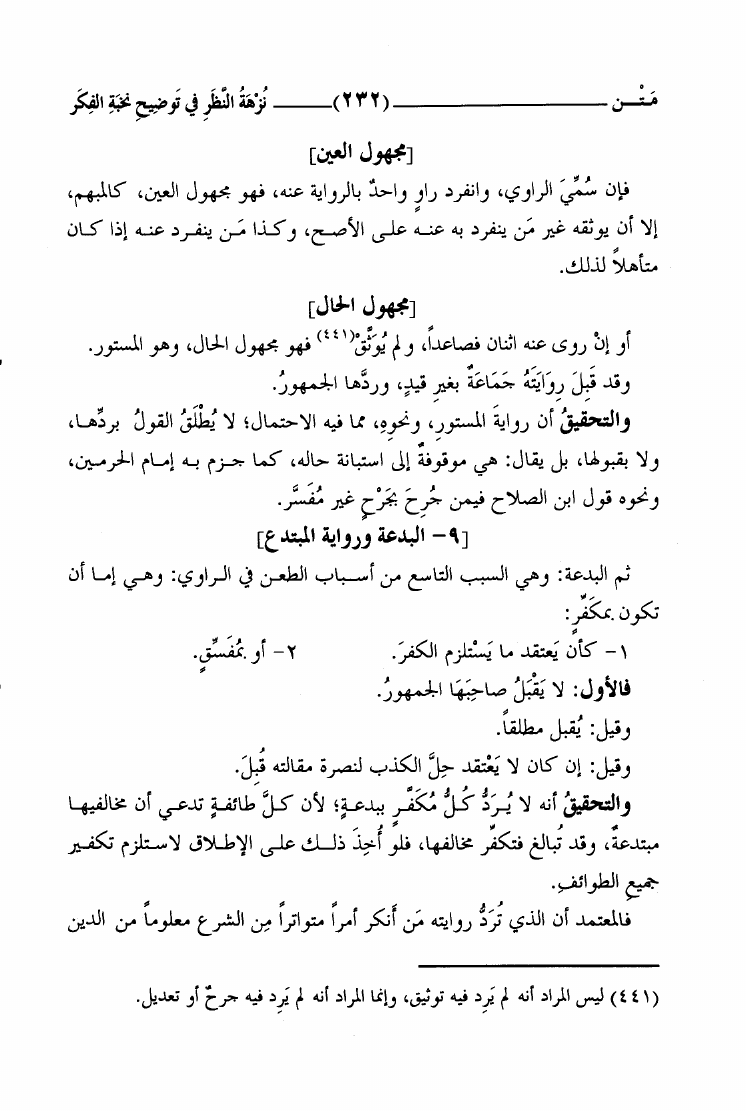 مَتْـــن ــــــــــــ (٢٣٢) ــــــ نُزْهَةُ النَّظَرِ في تَوضِيحِ نخبَةِ الفِكَر
[مجهول العين]
فإن سُمِّيَ الراوي، وانفرد راوٍ واحدٌ بالرواية عنه، فهو مجهول العين، كالمبهم،
إلا أن يوثقه غير مَن ينفرد به عنـه علـى الأصـح، وكـذا مَـن ينفـرد عنـه إذا كـان
متأهلاً لذلك.
[مجهول الحال]
أو إنْ روى عنه اثنان فصاعداً، ولم يُوَثَّقْ(٤٤١) فهو مجهول الحال، وهو المستور.
وقد قَبِلَ رِوَايَتَهُ جَمَاعَةٌ بغيرِ قيدٍ، وردَّها الجمهورُ.
والتحقيقُ أن روايةَ المستورِ، ونحوِهِ، مما فيه الاحتمال؛ لا يُطْلَقُ القولُ بردِّهـا،
ولا بقبولها، بل يقال: هي موقوفةٌ إلى استبانة حاله، كمـا جـزم بـه إمـام الحرمـين،
ونحوه قول ابن الصلاح فيمن جُرِحَ بجَرْحٍ غير مُفَسَّر.
[٩- البدعة ورواية المبتدع]
ثم البدعة: وهي السبب التاسع من أسـباب الطعـن في الـراوي: وهـي إمـا أن
تكون بمكَفِّرٍ:
١- كأن يَعتقد ما يَسْتلزم الكفرَ. ٢- أو بمُفَسِّقٍ.
فالأول: لا يَقْبَلُ صاحِبَهَا الجمهورُ.
وقيل: يُقبل مطلقاً.
وقيل: إن كان لا يَعْتقد حِلَّ الكذب لنصرة مقالته قُبلَ.
والتحقيقُ أنه لا يُـرَدُّ كُـلُّ مُكَفَّـرٍ ببدعـةٍ؛ لأن كـلَّ طائفـةٍ تدعـي أن مخالفيهـا
مبتدعةٌ، وقد تُبالغ فتكفِّر مخالفها، فلو أُخِذَ ذلـك علـى الإطـلاق لاسـتلزم تكفـير
جميعِ الطوائفِ.
فالمعتمد أن الذي تُرَدُّ روايته مَن أَنكر أمراً متواتراً مِن الشرع معلوماً من الدين
(٤٤١) ليس المراد أنه لم يَرِد فيه توثيق، وإنما المراد أنه لم يَرِد فيه جرحٌ أو تعديل.